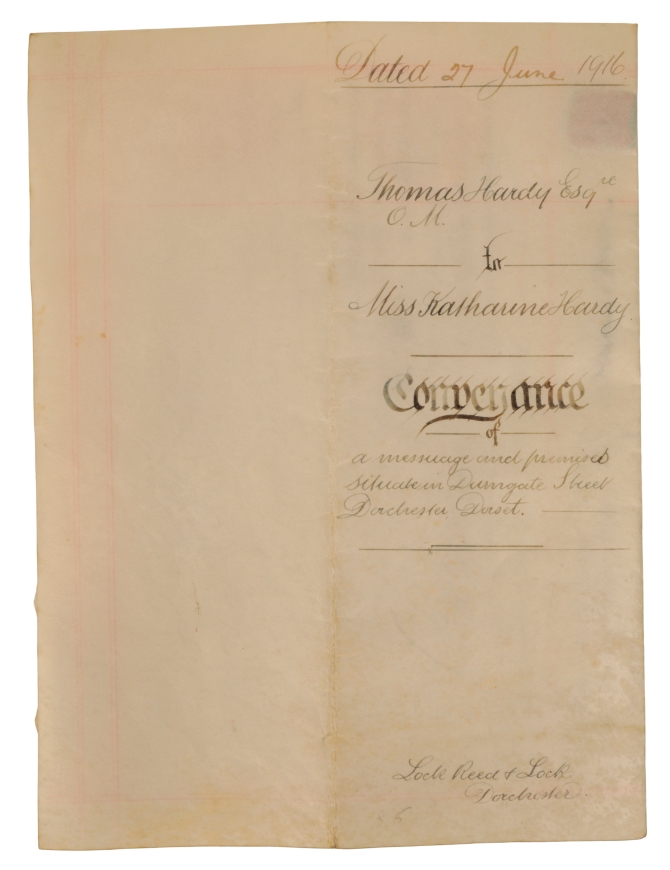 Dated 27 June 1916
Thomas Hardy Esqre
O. M.
to
Miss Katharine Hardy.
Conveyance
of
a messuage and premises
situate in Durngate Street
Dorchester Dorset.
Lock Reed & Lock
Dorchester.